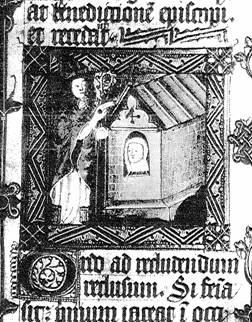 ar benedictionē episcopi.
et recedat
Ordo ad recludendum
reclusum. Si feīa
sit: pnium iaceat ī occi